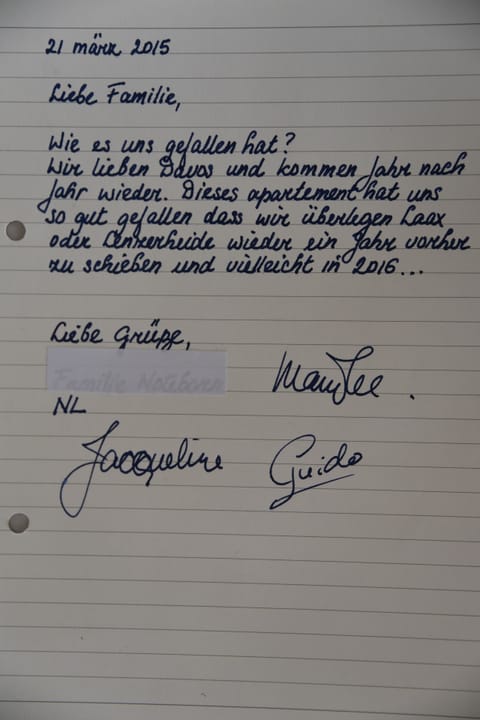 21 märz 2015
Liebe Familie,
Wie es uns gefallen hat?
Wir lieben Davos und kommen Jahr nach
Jahr wieder. Dieses apartement hat uns
so gut gefallen dass wir überlegen Laax
oder Lenzerheide wieder ein Jahr vorher
zu schieben und vielleicht in 2016...
Liebe Grüße,
Familie
NL
Jacqueline Guido